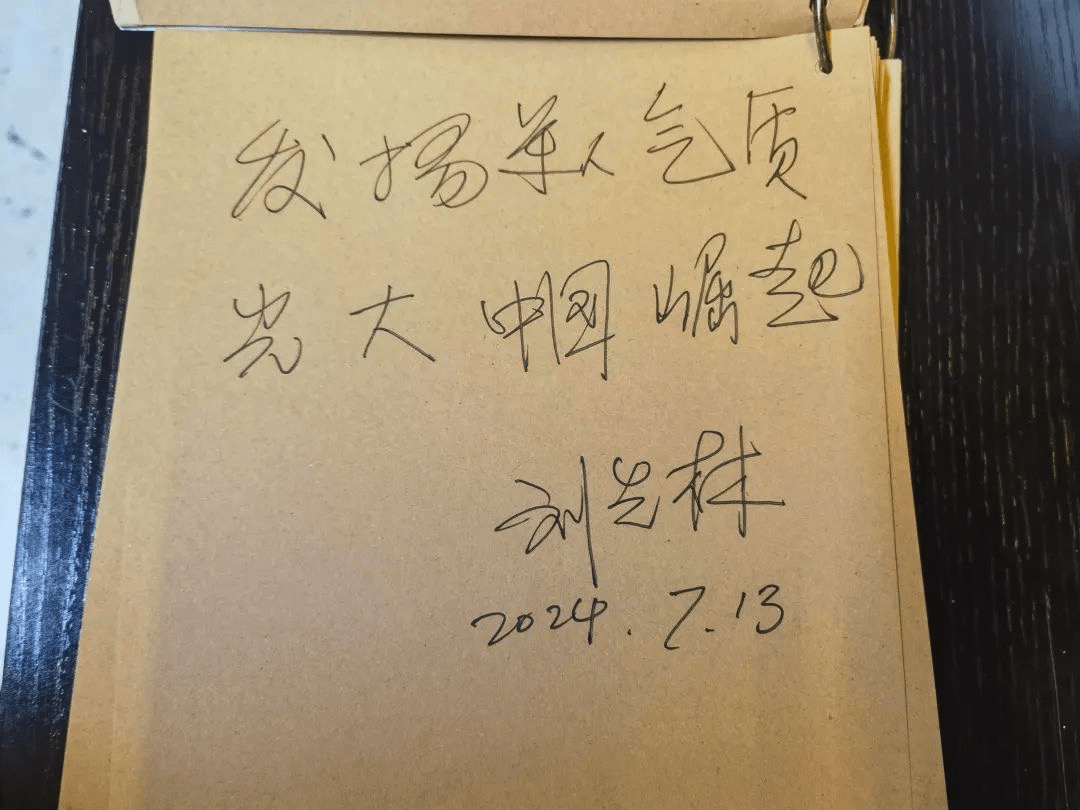 发扬军人气质
光大中国崛起
刘先林
2024.7.13